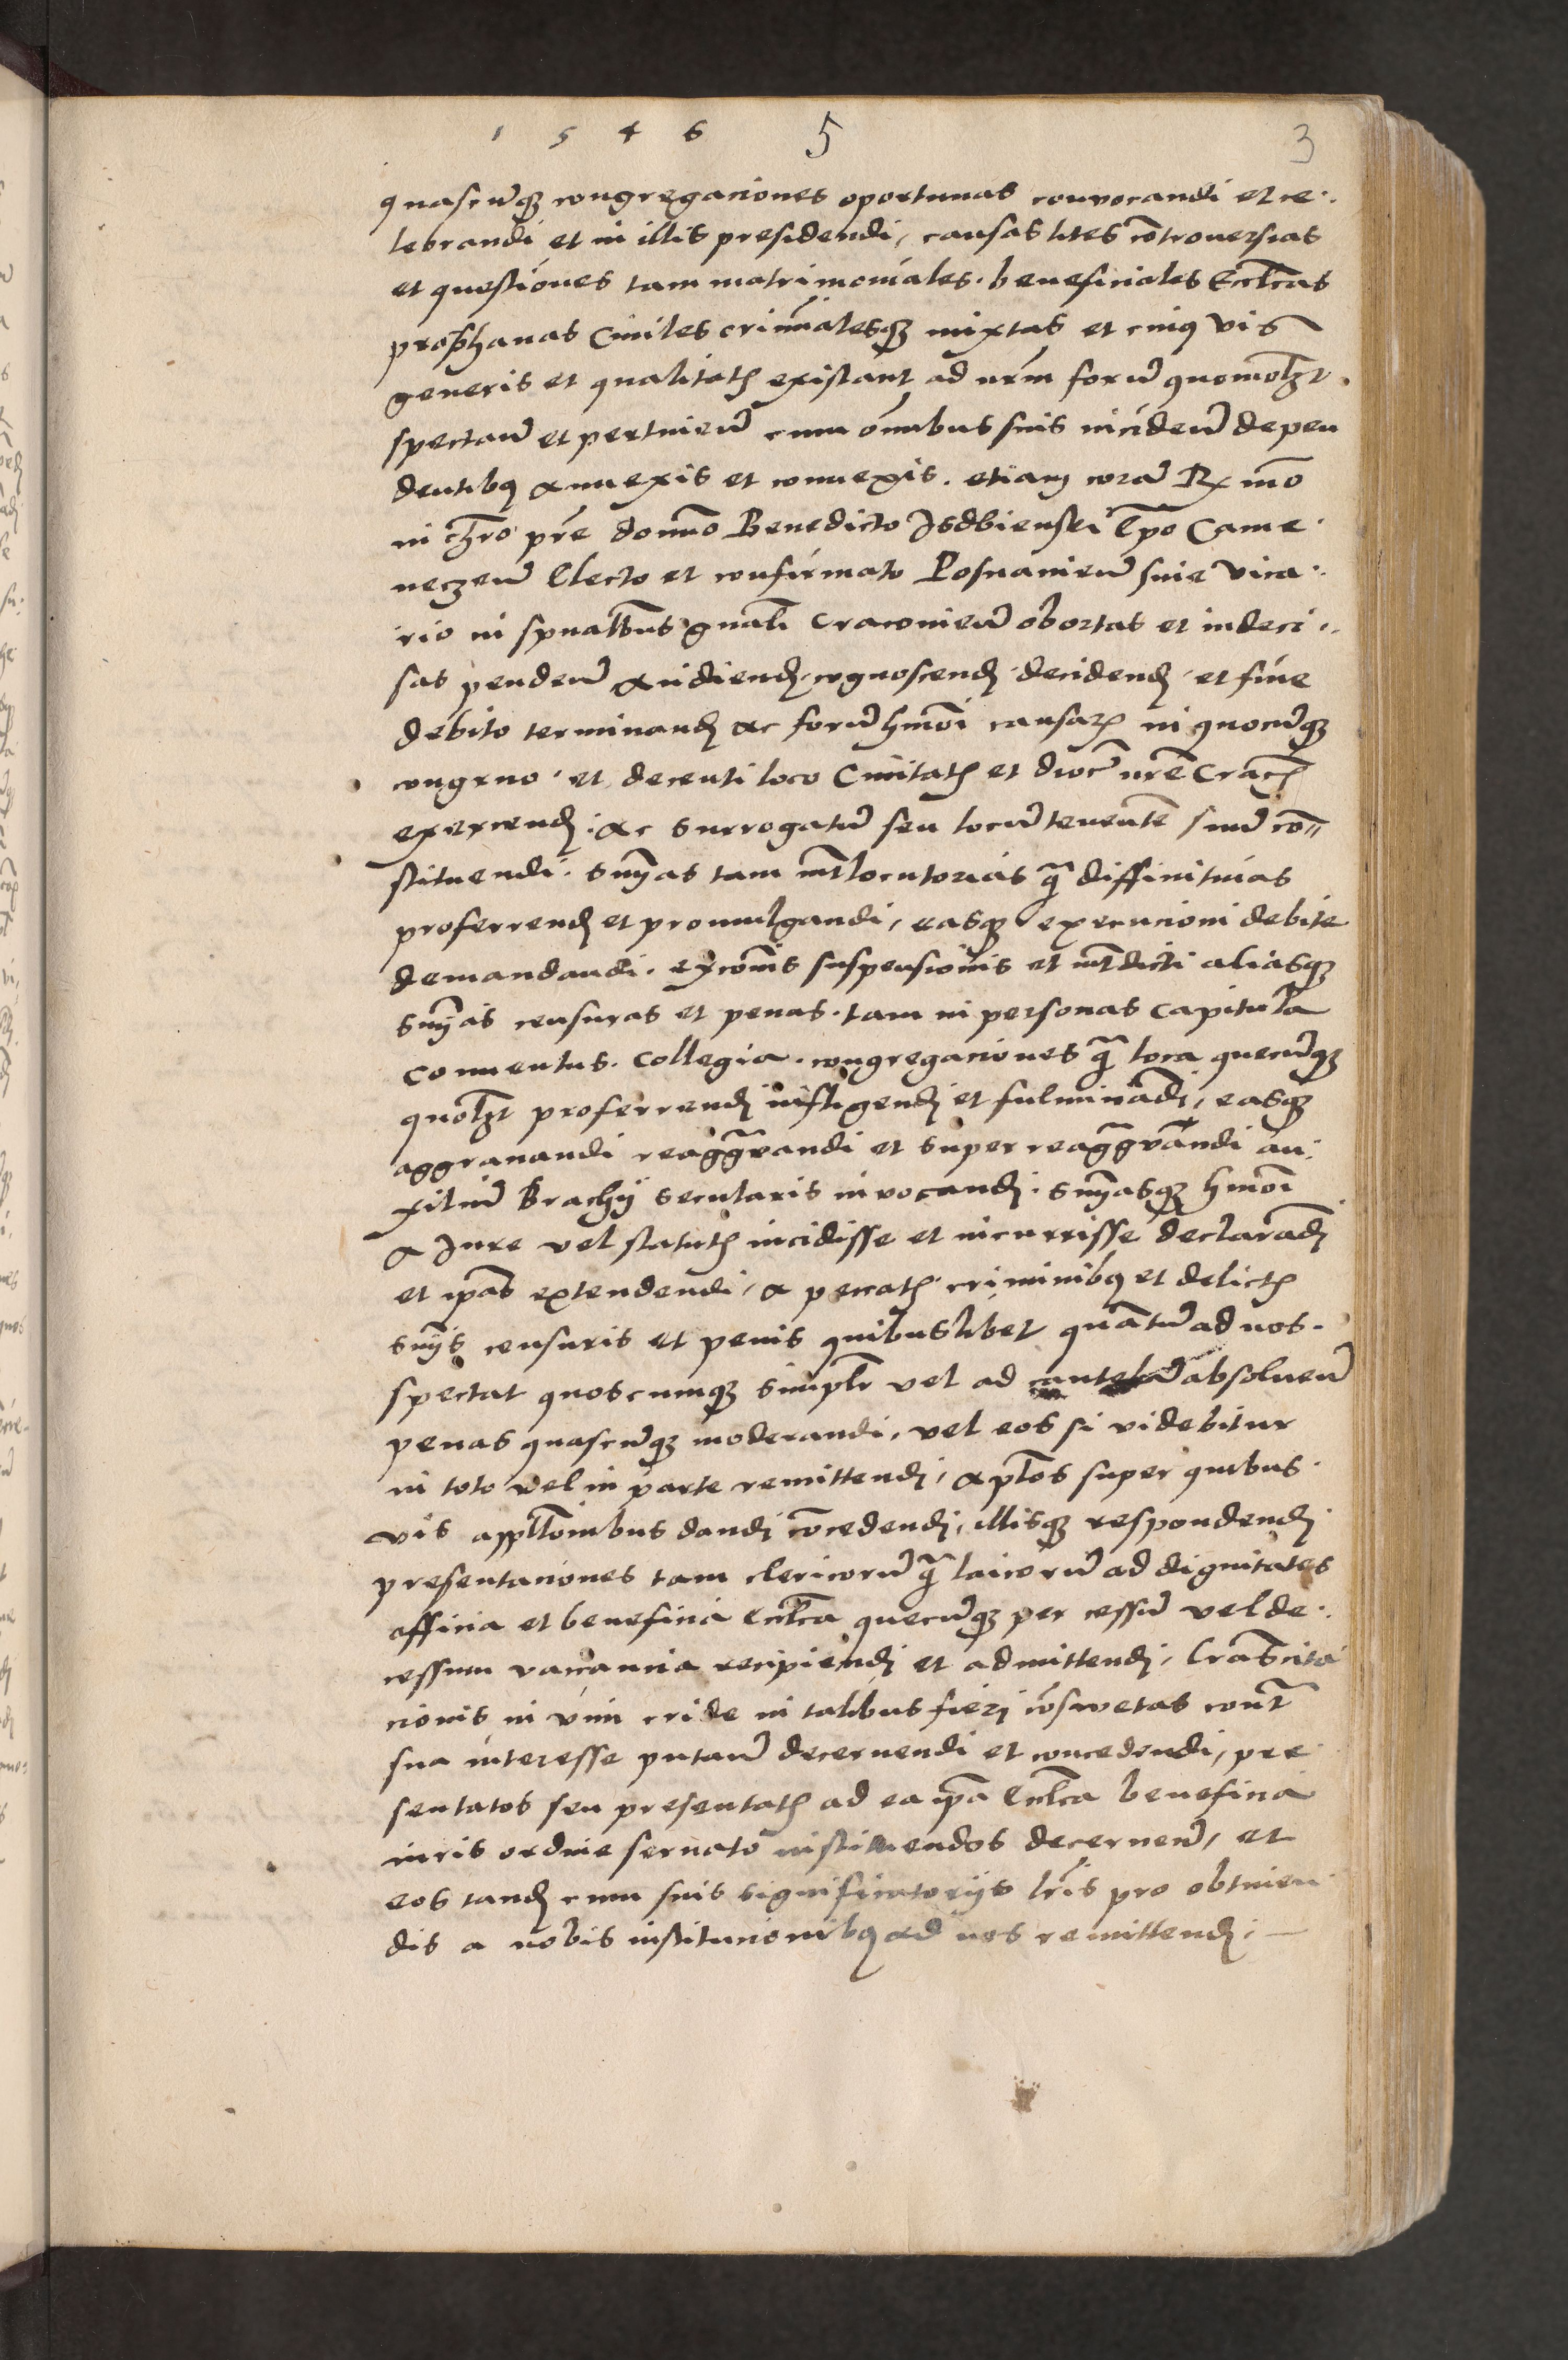 1 5 4 6 5 3
quascūqȝ congregaciones oportunas convocandi et ce..
lebrandi et in illis presidendi, causas lites cōtroversias
et questiones tam matrimoniales. beneficiales Eccl̄cas
prophanas Civiles crimīalesqȝ mixtas et cuiusvis
generis et qualitatꝭ existant ad nr̄m forū quomol̄ȝt
spectan̄ et pertinen̄ cum om̄ibus suis inciden̄ depen
dentibꝰ annexis et connexis. etiam corā Rx mo
in chr̄o pr̄e domino Benedicto Isdbienski Ep̄o Came.
neczen̄ Electo et confirmato Posnanien̄ sive vica..
rio in sp̄ualībus gn̄ali Cracovien̄ obortas et indeci..
sas penden̄ audiendj. cognoscendj. decidendj. et fine
debito terminandj ac forū hm̄oi causaꝝ in quocūqȝ
congruo. et decenti loco Civitatꝭ et dioc̄ nr̄e Cracꝭ
exercendj. ac surrogatū seu locūtenentē suū cō//
stituendi. sn̄ias tam int̄locutorias q̄ diffinitivas
proferrendj et promulgandi, easqȝ execucioni debite
demandandi. excoīs suspensionis et int̄dicti aliasqȝ
sn̄ias censuras et penas. tam in personas capitula
conventus. collegia. congregaciones q̄ loca quecūqȝ
quol̄ȝt proferrendj infligendj et fulminādj, easqȝ
aggravandi reaggravandi et superreaggravandi au:
xiliū Brachij secularis invocandj. sn̄iasqȝ hm̄oi
a Jure vel statutꝭ incidisse et incurrisse declarādj
et ip̄as extendendi, a peccatꝭ criminibꝰ et delictꝭ
sn̄ijs censuris et penis quibuslibet quātū ad nos.
spectat quoscumqȝ simpl̄r vel ad cautelā absolven̄
penas quascūqȝ moderandi, vel eos si videbitur
in toto vel in parte remittendj, apl̄os super quibus.
vis appl̄lonibus dandj cōcedendj, illisqȝ respondendj
presentaciones tam clericorū q̄ laicorū ad dignitates
officia et beneficia Eccl̄ca quecūqȝ per cessū vel de..
cessum vacancia recipiendj et admittendj, lr̄as cita
cionis in vim cride in talibus fieri cōswetas cont̄
sua interesse putan̄ decernendi et concedendi, pre
sentatos seu presentatꝭ ad ea ip̄a Eccl̄ca beneficia
iuris ordine servato instituendos decernen̄, et
eos tandj cum suis significatorijs lr̄is pro obtinen
dis a nobis institucionibꝰ ad nos remittendj. —